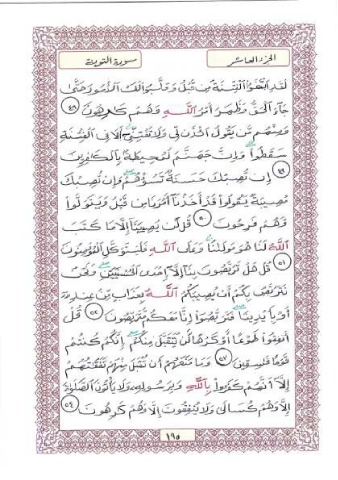 الجزء العاشر
سورة التوبة
لَقَدِ ابْتَغَوُا الْفِتْنَةَ مِن قَبْلُ وَقَلَّبُوا لَكَ الْأُمُورَ حَتَّىٰ
جَاءَ الْحَقُّ وَظَهَرَ أَمْرُ اللَّهِ وَهُمْ كَارِهُونَ ٤٨
وَمِنْهُم مَّن يَقُولُ ائْذَن لِّي وَلَا تَفْتِنِّي أَلَا فِي الْفِتْنَةِ
سَقَطُوا وَإِنَّ جَهَنَّمَ لَمُحِيطَةٌ بِالْكَافِرِينَ
٤٩ إِن تُصِبْكَ حَسَنَةٌ تَسُؤْهُمْ وَإِن تُصِبْكَ
مُصِيبَةٌ يَقُولُوا قَدْ أَخَذْنَا أَمْرَنَا مِن قَبْلُ وَيَتَوَلَّوا
وَّهُمْ فَرِحُونَ ٥٠ قُل لَّن يُصِيبَنَا إِلَّا مَا كَتَبَ
اللَّهُ لَنَا هُوَ مَوْلَانَا وَعَلَى اللَّهِ فَلْيَتَوَكَّلِ الْمُؤْمِنُونَ
٥١ قُلْ هَلْ تَرَبَّصُونَ بِنَا إِلَّا إِحْدَى الْحُسْنَيَيْنِ وَنَحْنُ
نَتَرَبَّصُ بِكُمْ أَن يُصِيبَكُمُ اللَّهُ بِعَذَابٍ مِّنْ عِندِهِ
أَوْ بِأَيْدِينَا فَتَرَبَّصُوا إِنَّا مَعَكُم مُّتَرَبِّصُونَ ٥٢ قُلْ
أَنفِقُوا طَوْعًا أَوْ كَرْهًا لَّن يُتَقَبَّلَ مِنكُمْ إِنَّكُمْ كُنتُمْ
قَوْمًا فَاسِقِينَ ٥٣ وَمَا مَنَعَهُمْ أَن تُقْبَلَ مِنْهُمْ نَفَقَاتُهُمْ
إِلَّا أَنَّهُمْ كَفَرُوا بِاللَّهِ وَبِرَسُولِهِ وَلَا يَأْتُونَ الصَّلَاةَ
إِلَّا وَهُمْ كُسَالَىٰ وَلَا يُنفِقُونَ إِلَّا وَهُمْ كَارِهُونَ ٥٤
١٩٥